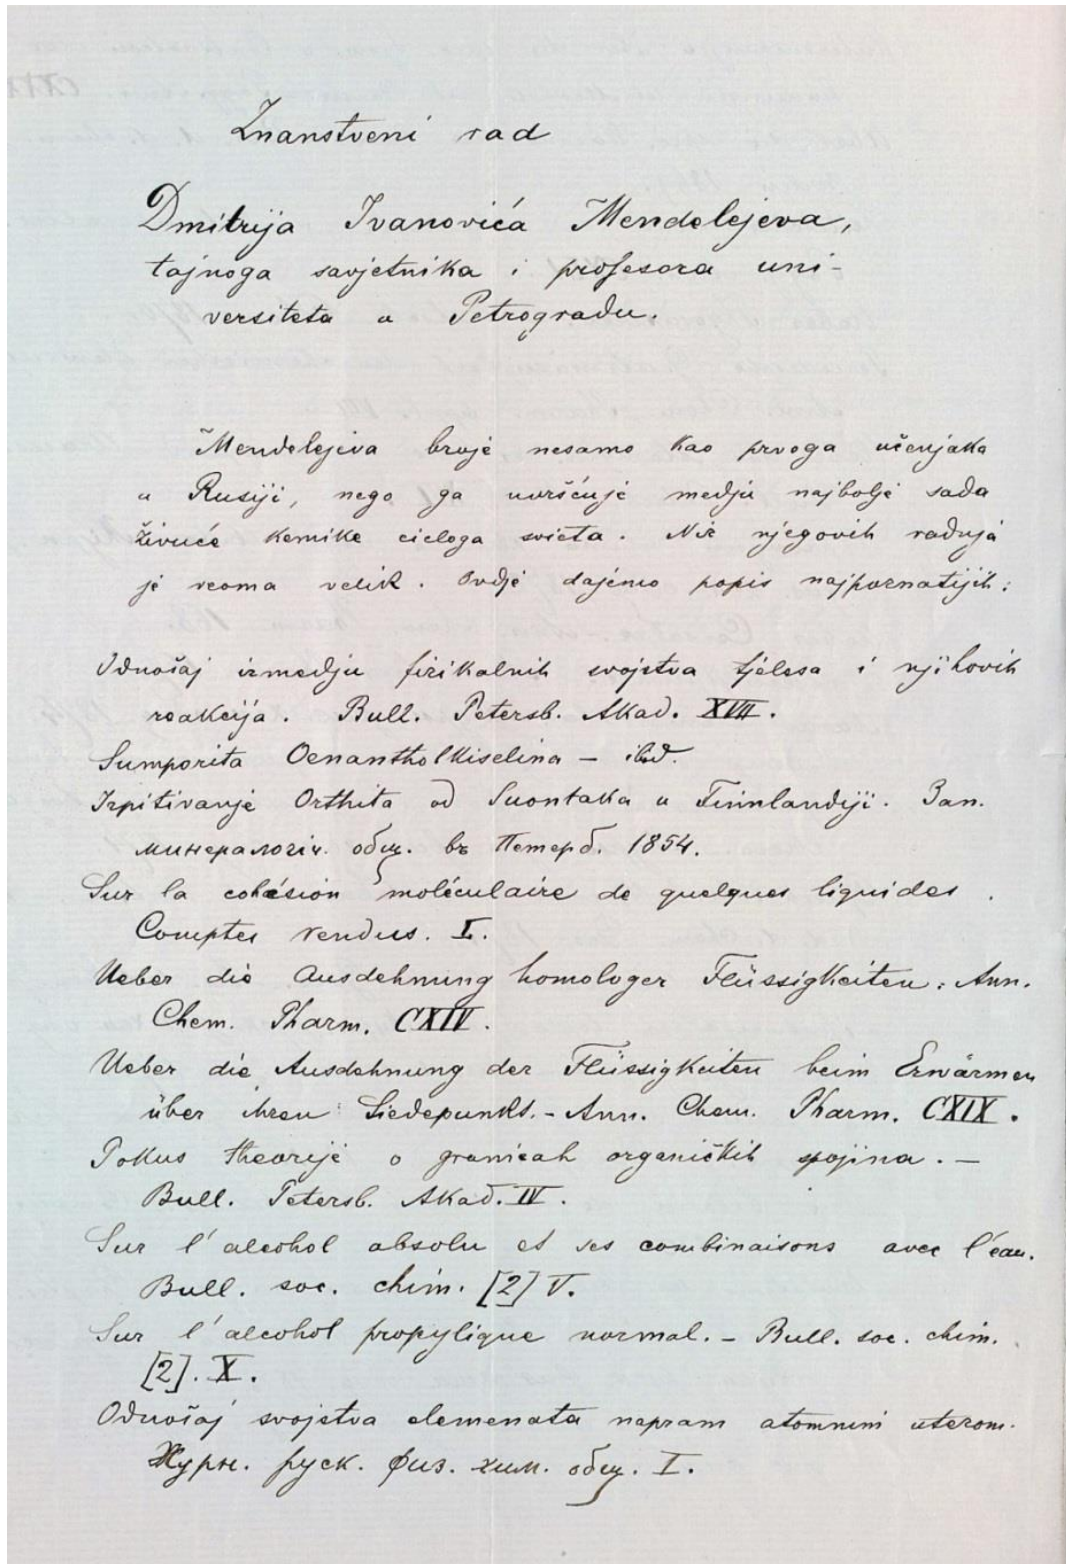 Znanstveni rad
Dmitrija Ivanovića Mendelejeva,
tajnoga savjetnika i profesora uni-
versiteta u Petrogradu.
Mendelejeva broje nesamo kao prvoga učenjaka
u Rusiji, nego ga uvršćuje medju najbolje sada
živuće kemike cieloga svieta. Niz njegovih radnja
je veoma velik. Ovdje dajemo popis najpoznatijih:
Odnošaj izmedju fizikalnih svojstva tjelesa i njihovih
reakcija. Bull. Petersb. Akad. XVII.
Sumporita Oenantholkiselina – ibid.
Izpitivanje Orthita od Suontaka u Finnlandiji. Зап.
минералогіч. общ. въ Петерб. 1854.
Sur la cohésion moléculaire de quelques liquides.
Comptes rendus. L.
Ueber die Ausdehnung homologer Flüssigkeiten. Ann.
Chem. Pharm. CXIV.
Ueber die Ausdehnung der Flüssigkeiten beim Erwärmen
über ihren Siedepunkt. – Ann. Chem. Pharm. CXIX.
Pokus theorije o granicah organičkih spojina. –
Bull. Petersb. Akad. IV.
Sur l'alcohol absolu et ses combinaisons avec l'éau.
Bull. soc. chim. [2] V.
Sur l'alcohol propylique normal. – Bull. soc. chim.
[2]. X.
Odnošaj svojstva elemenata napram atomnim utezom.
Журн. руск. физ. хим. общ. I.